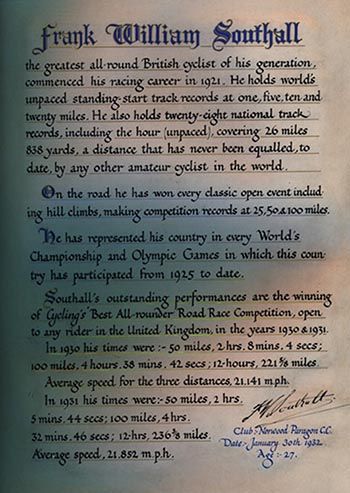 Frank William Southall
the greatest all-round British cyclist of his generation,
commenced his racing career in 1921. He holds world's
unpaced standing-start track records at one, five, ten and
twenty miles. He also holds twenty-eight national track
records, including the hour (unpaced), covering 26 miles
838 yards, a distance that has never been equalled, to
date, by any other amateur cyclist in the world.
On the road he has won every classic open event includ-
ing hill climbs, making competition records at 25, 50 & 100 miles.
He has represented his country in every World's
Championship and Olympic Games in which this coun-
try has participated from 1925 to date.
Southall's outstanding performances are the winning
of Cycling's Best All-rounder Road Race Competition, open
to any rider in the United Kingdom, in the years 1930 & 1931.
In 1930 his times were :- 50 miles, 2 hrs. 8 mins. 4 secs;
100 miles, 4 hours. 38 mins. 42 secs; 12-hours, 221⅝ miles.
Average speed for the three distances, 21.141 m.p.h.
In 1931 his times were :- 50 miles, 2 hrs.
5 mins. 44 secs; 100 miles, 4 hrs.
32 mins. 46 secs; 12-hrs, 236⅜ miles.
Average speed, 21.852 m.p.h.
F W Southall
Club:- Norwood Paragon C.C.
Date:- January 30th 1932.
Age:- 27.